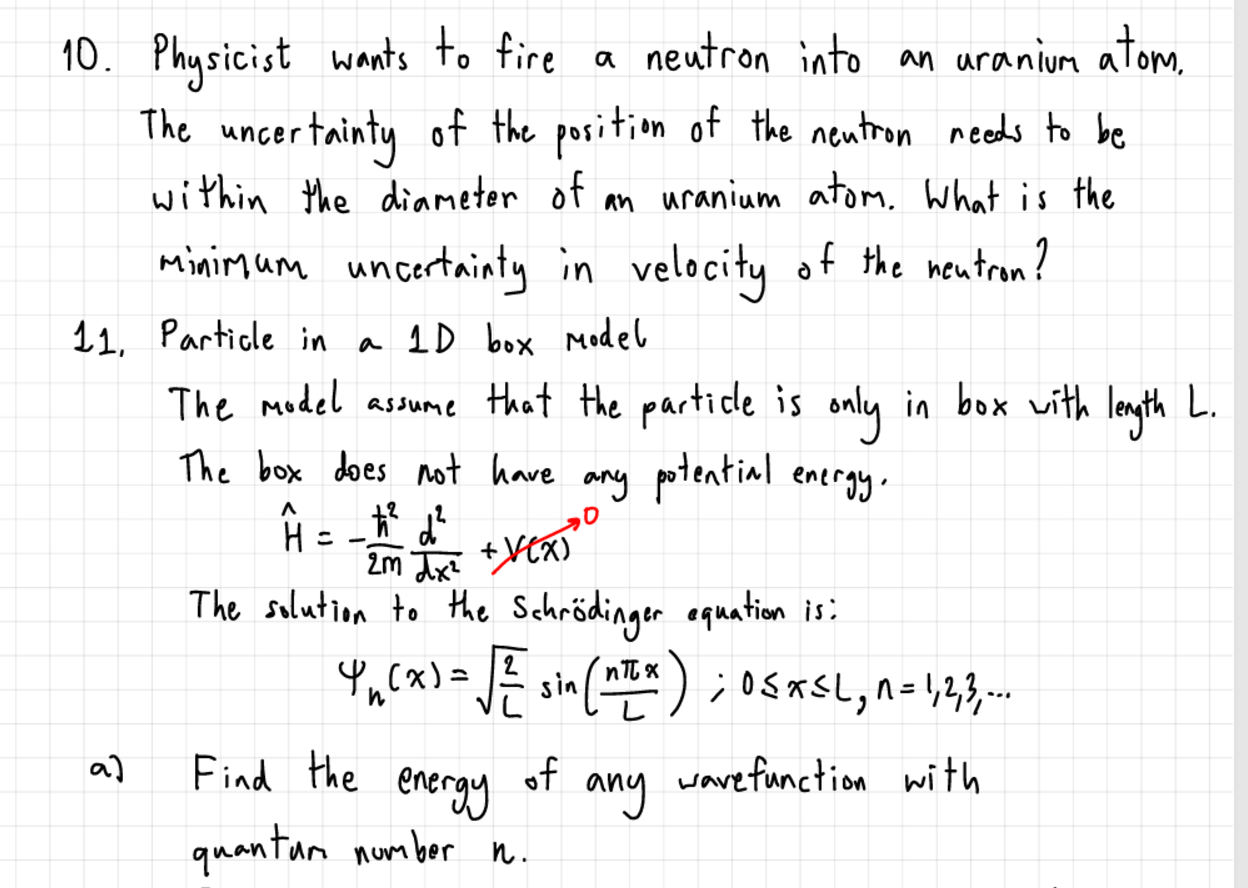 10. Physicist wants to fire a neutron into an uranium atom.
The uncertainty of the position of the neutron needs to be
within the diameter of an uranium atom. What is the
minimum uncertainty in velocity of the neutron?
11. Particle in a 1D box model
The model assume that the particle is only in box with length L.
The box does not have any potential energy.
Ĥ = -ħ²/2m d²/dx² + V(x) → 0
The solution to the Schrödinger equation is:
Ψₙ(x) = √(2/L) sin(nπx/L) ; 0 ≤ x ≤ L, n = 1,2,3,...
a) Find the energy of any wavefunction with
quantum number n.